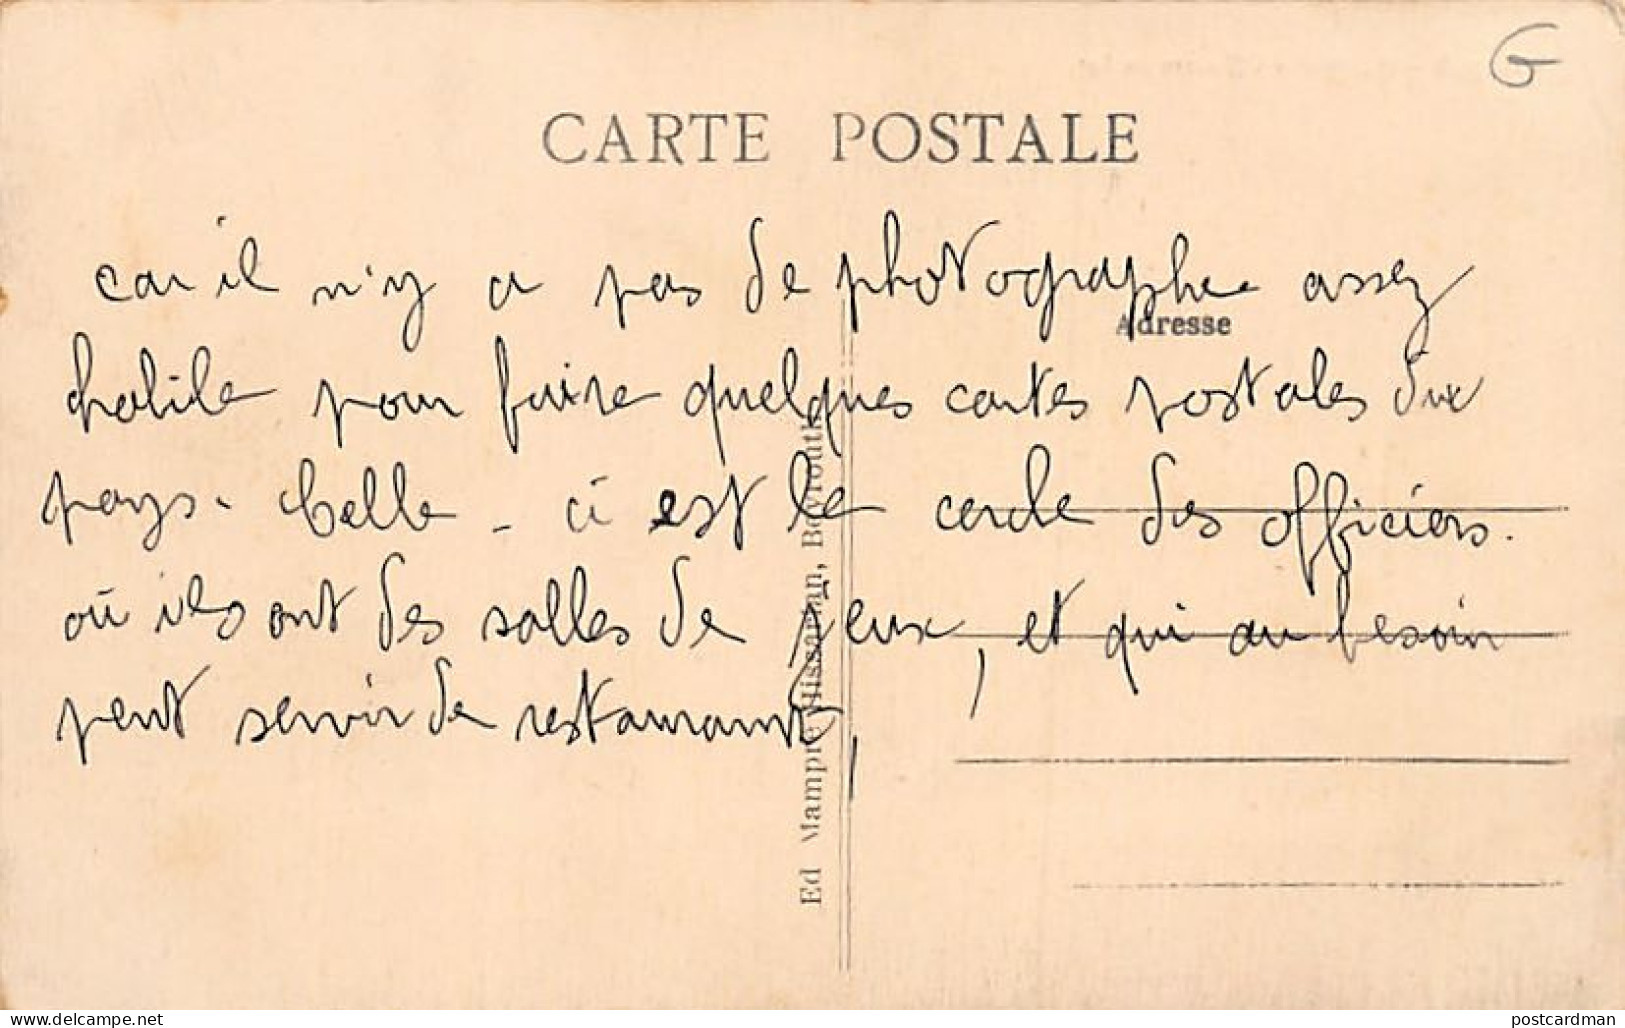 G
CARTE POSTALE
car il n'y a pas de photographe assez
Adresse
habile pour faire quelques cartes postales du
pays. Celle-ci est le cercle des officiers.
où ils ont des salles de jeux, et qui au besoin
peut servir de restaurant,
Ed Mampre Missarian, Beyrouth
www.delcampe.net
postcardman